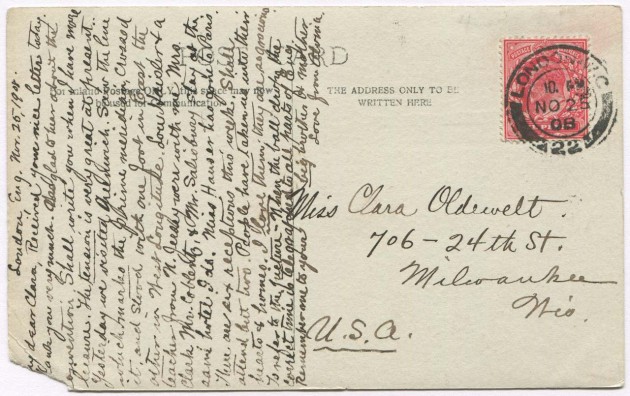 London, Eng. Nov. 25, 1908.
My dear Clara, Received your nice letter today.
Thank you very much. Was glad to hear about the
convention. Shall write you when I have more
leisure. The tension is very great at present.
Yesterday we visited Greenwich. Saw the line
which marks the prime meridian. Crossed
it, and stood with one foot in east the
other in West Longitude. Lou Snyder & a
teacher from N. were with me. Mrs.
Clark, Mr. & Mr. Salisbury stay at the
same hotel I do. Miss Hauser has gone to Paris.
There are six receptions this week. Shall
attend but two. People have taken us into their
hearts & homes. I love them; they are so gracious
To refer to the the bell during the
correct time is telegraphed to all parts of Eng.
Remember me to your big brother & mother
Love from
POST CARD
For Inland Postage ONLY this space may now
be used for Communication
THE ADDRESS ONLY TO BE
WRITTEN HERE
LONDON. W.C
10. PM
NO 25
08
22
Miss Clara Oldewelt.
706-24th St.
Milwaukee
Wis.
U.S.A.